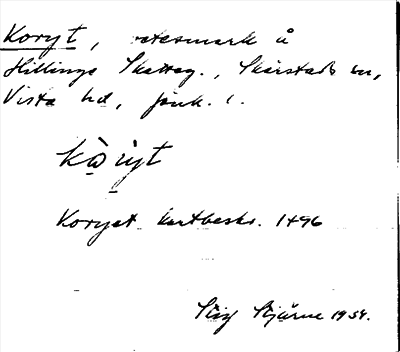 Koryt, utesmark å
Hillinge Skatteg., Skärstads sn,
Vista hd, Jönk. l.
kò̤ ryt
Koryet kartbeskr. 1796
Stig Stjärne 1954.